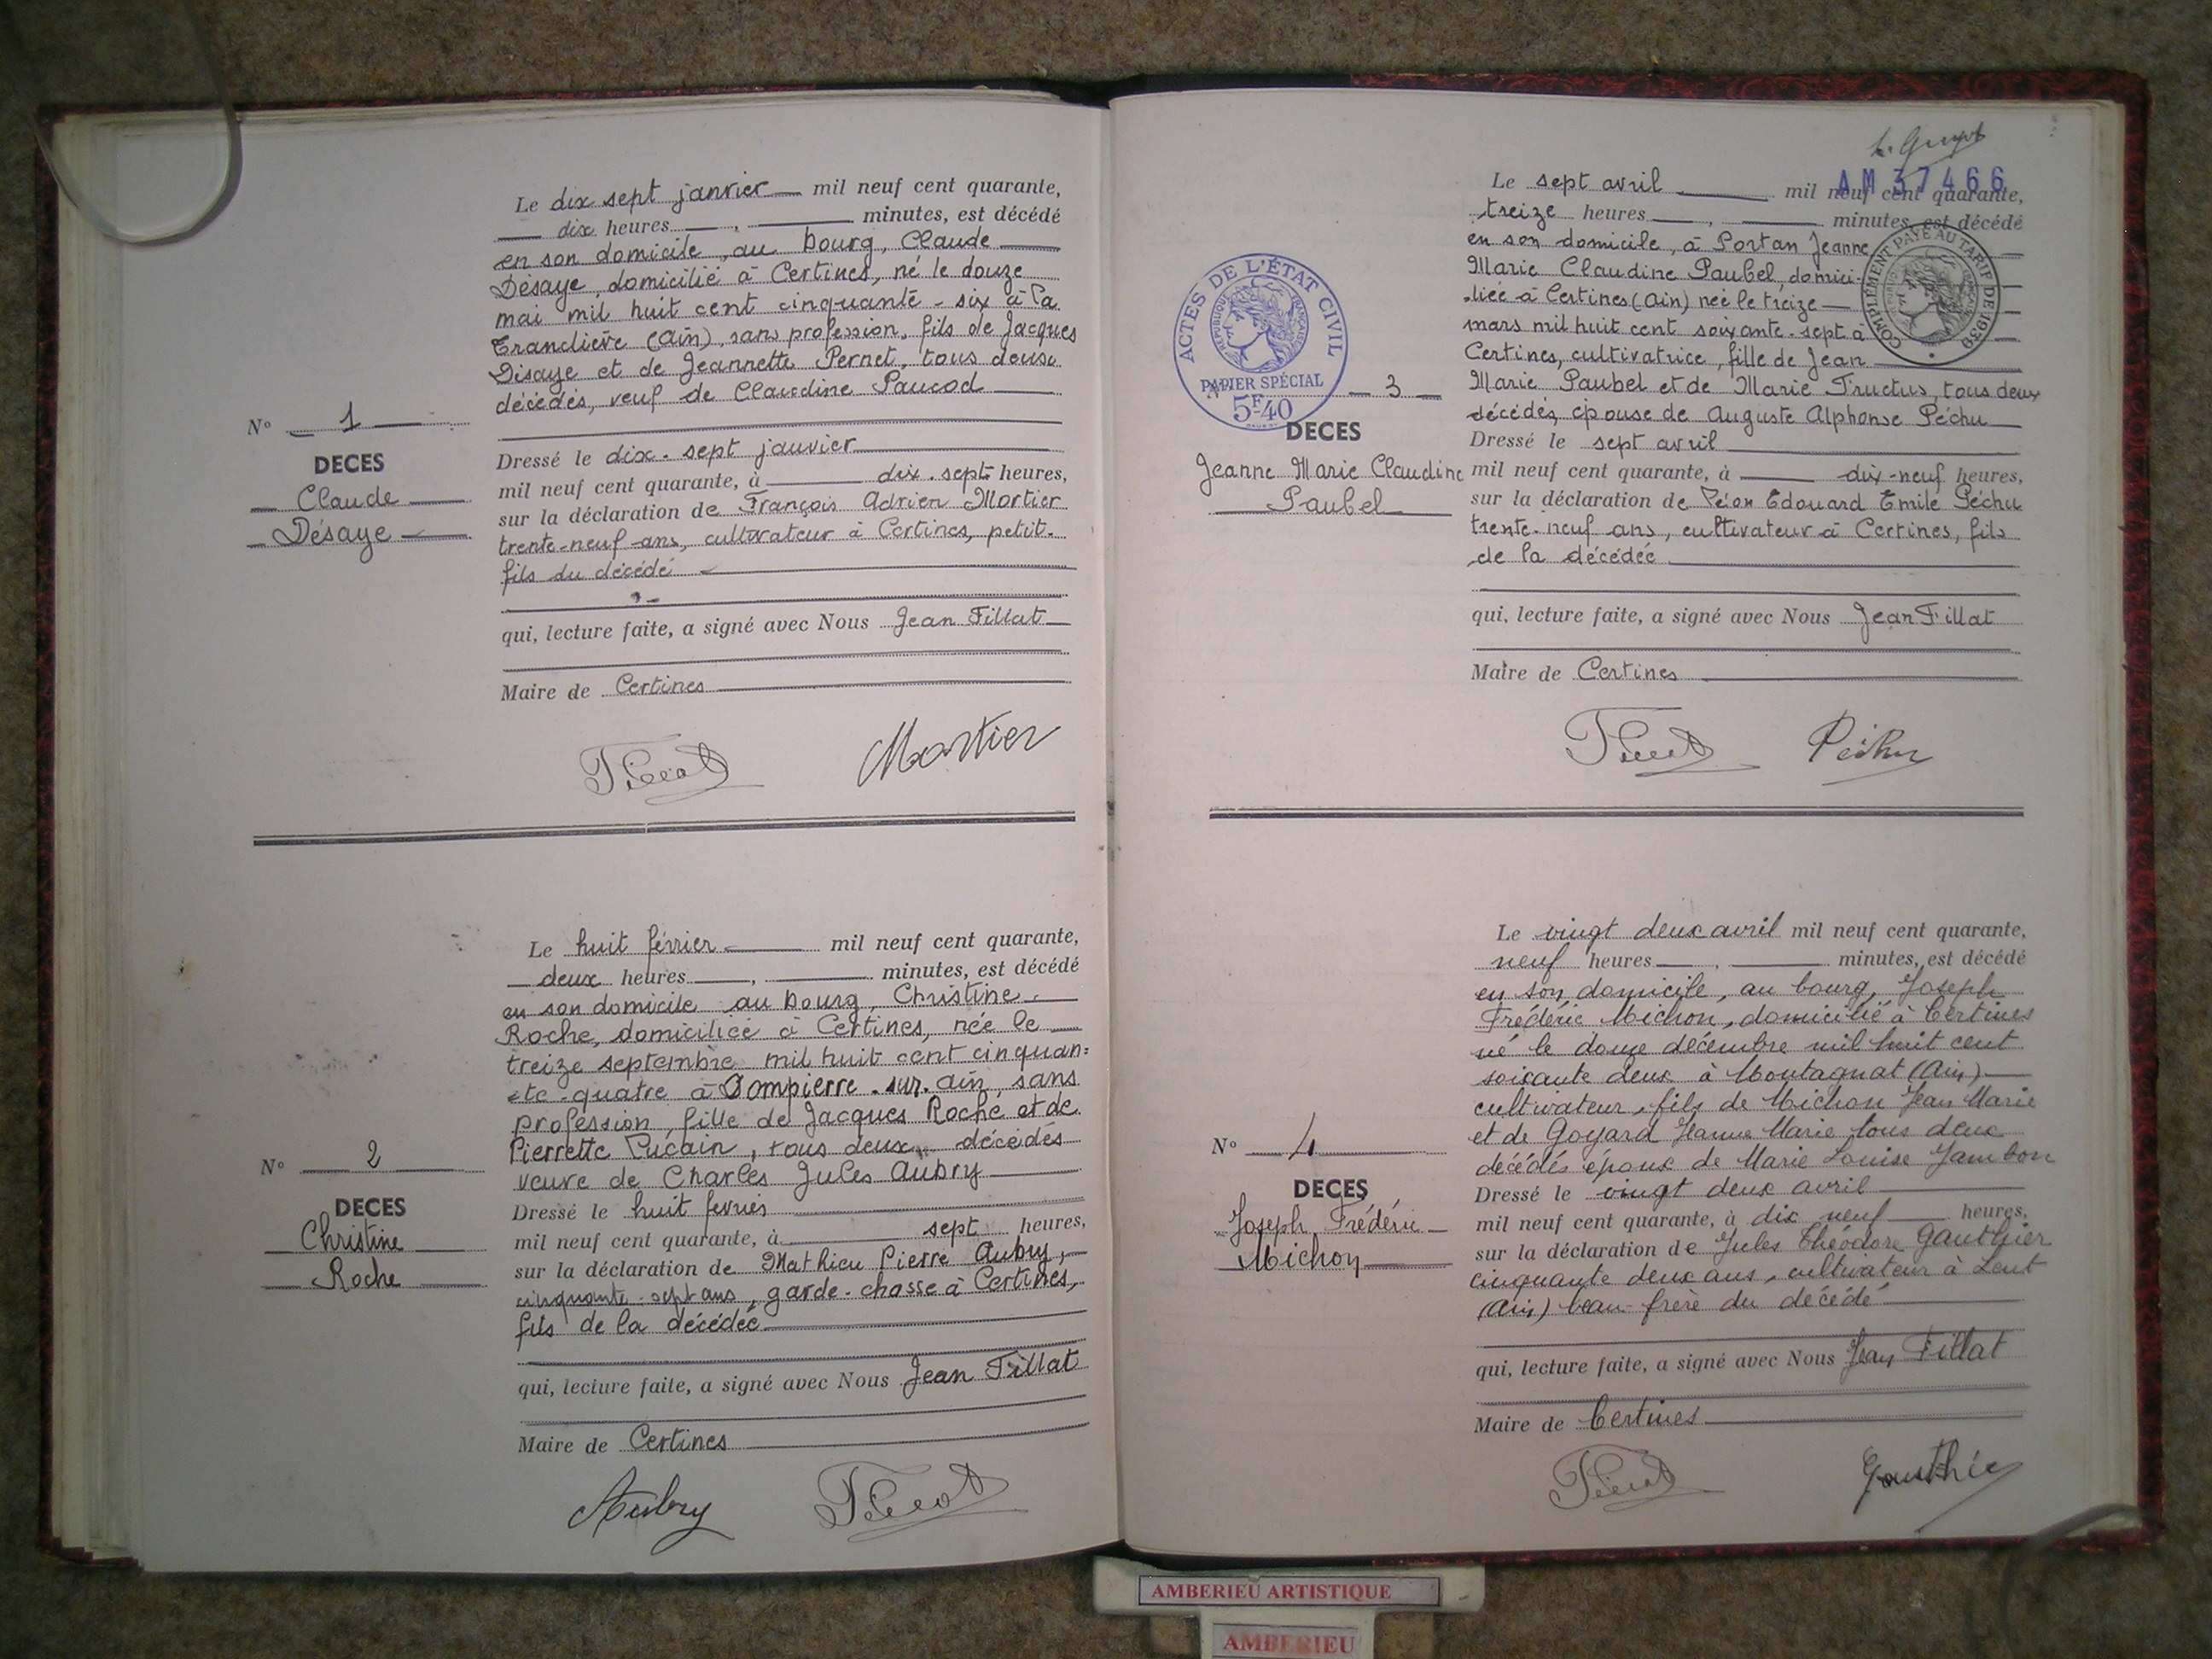 Le dix sept janvier mil neuf cent quarante,
dix heures, minutes, est décédé
en son domicile, au bourg, Claude
Désaye, domicilié à Certines, né le douze
mai mil huit cent cinquante-six à la
Tranclière (Ain), sans profession, fils de Jacques
Désaye et de Jeannette Pernet, tous deux
décédés, veuf de Claudine Paucod
N° 1
DECES
Claude
Désaye
Dressé le dix-sept janvier
mil neuf cent quarante, à dix-sept heures,
sur la déclaration de François Adrien Mortier
trente-neuf ans, cultivateur à Certines, petit-
fils du décédé
qui, lecture faite, a signé avec Nous Jean Fillat
Maire de Certines
Mortier
Le huit février mil neuf cent quarante,
deux heures, minutes, est décédé
en son domicile au bourg, Christine
Roche, domiciliée à Certines, née le
treize septembre mil huit cent cinquan=
te-quatre à Dompierre-sur-Ain, sans
profession, fille de Jacques Roche et de
Pierrette Pucain, tous deux décédés
veuve de Charles Jules Aubry
N° 2
DECES
Christine
Roche
Dressé le huit fevrier
mil neuf cent quarante, à sept heures,
sur la déclaration de Mathieu Pierre Aubry,
cinquante-sept ans, garde-chasse à Certines,
fils de la décédée
qui, lecture faite, a signé avec Nous Jean Fillat
Maire de Certines
Aubry
AM 37466
Le sept avril mil neuf cent quarante,
treize heures, minutes, est décédé
en son domicile, à Portan Jeanne
Marie Claudine Paubel, domici-
liée à Certines (Ain) née le treize
mars mil huit cent soixante-sept à
Certines, cultivatrice, fille de Jean
Marie Paubel et de Marie Fructus, tous deux
décédés, épouse de Auguste Alphonse Péchu
COMPLÉMENT PAYÉ AU TARIF DE 1939
ACTES DE L'ÉTAT CIVIL
RÉPUBLIQUE FRANÇAISE
PAPIER SPÉCIAL
5F40
3
DECES
Jeanne Marie Claudine
Paubel
Dressé le sept avril
mil neuf cent quarante, à dix-neuf heures,
sur la déclaration de Léon Edouard Emile Péchu
trente-neuf ans, cultivateur à Certines, fils
de la décédée
qui, lecture faite, a signé avec Nous Jean Fillat
Maire de Certines
Péchu
Le vingt deux avril mil neuf cent quarante,
neuf heures, minutes, est décédé
en son domicile, au bourg, Joseph
Frédéric Michon, domicilié à Certines
né le douze décembre mil huit cent
soixante deux à Montagnat (Ain)
cultivateur, fils de Michon Jean Marie
et de Goyard Jeanne Marie tous deux
décédés époux de Marie Louise Jambon
N° 4
DECES
Joseph Frédéric
Michon
Dressé le vingt deux avril
mil neuf cent quarante, à dix neuf heures,
sur la déclaration de Jules Théodore Gauthier
cinquante deux ans, cultivateur à Lent
(Ain) beau-frère du décédé
qui, lecture faite, a signé avec Nous Jean Fillat
Maire de Certines
Gauthier
AMBERIEU ARTISTIQUE
AMBERIEU